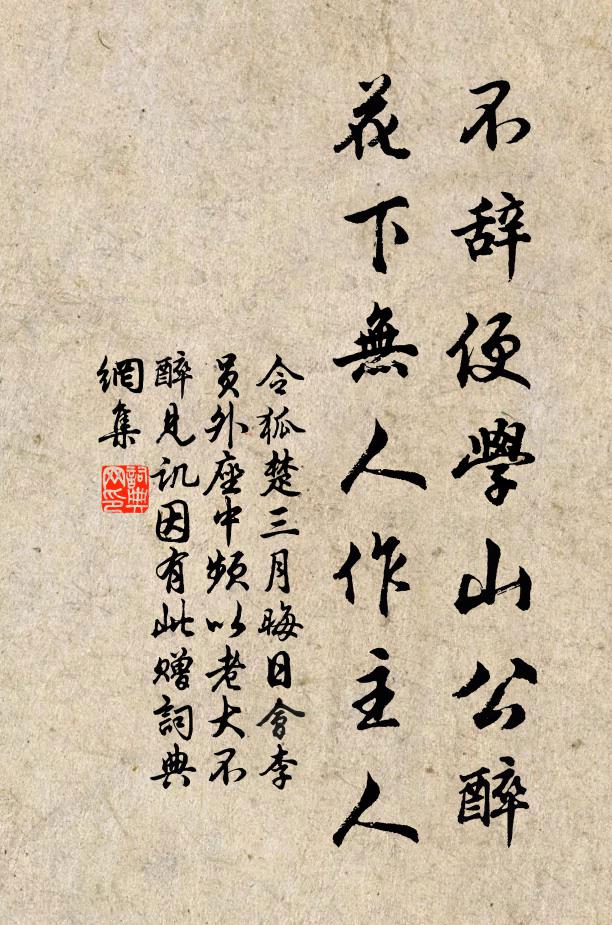 不辞便學山公醉
花下無人作主人
令狐楚三月晦日會李
員外座中頻以老大不
醉見訊因有此贈詞典
網集
詞典網印